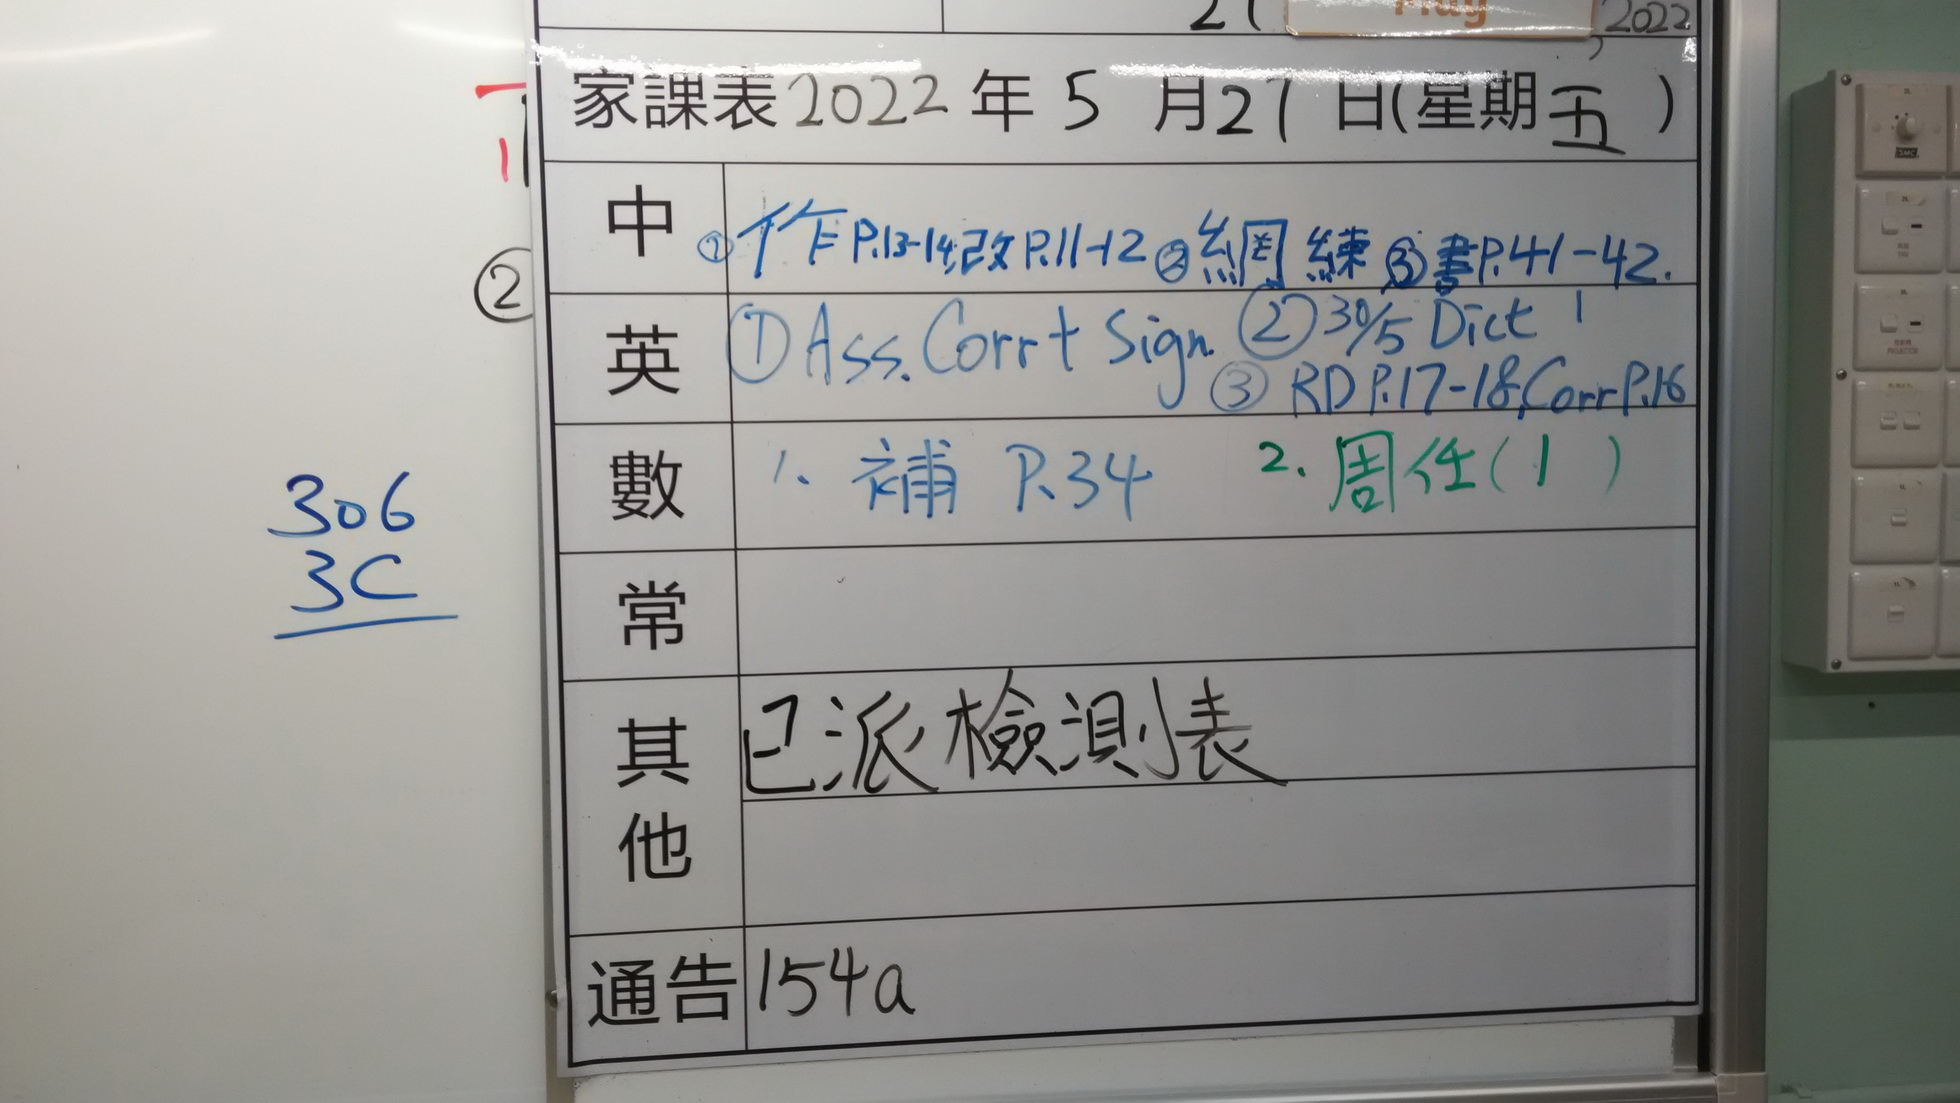 27 May 2022
家課表2022年5月27日(星期五)
中
①作P.13-14,改P.11-12 ②網練 ③書P.41-42.
英
①Ass. Corr + Sign ②30/5 Dict 1
③ RD P.17-18, Corr P.16
數
1. 補 P.34 2. 周任(1)
常
其他
已派檢測表
通告
154a
②
306
3C